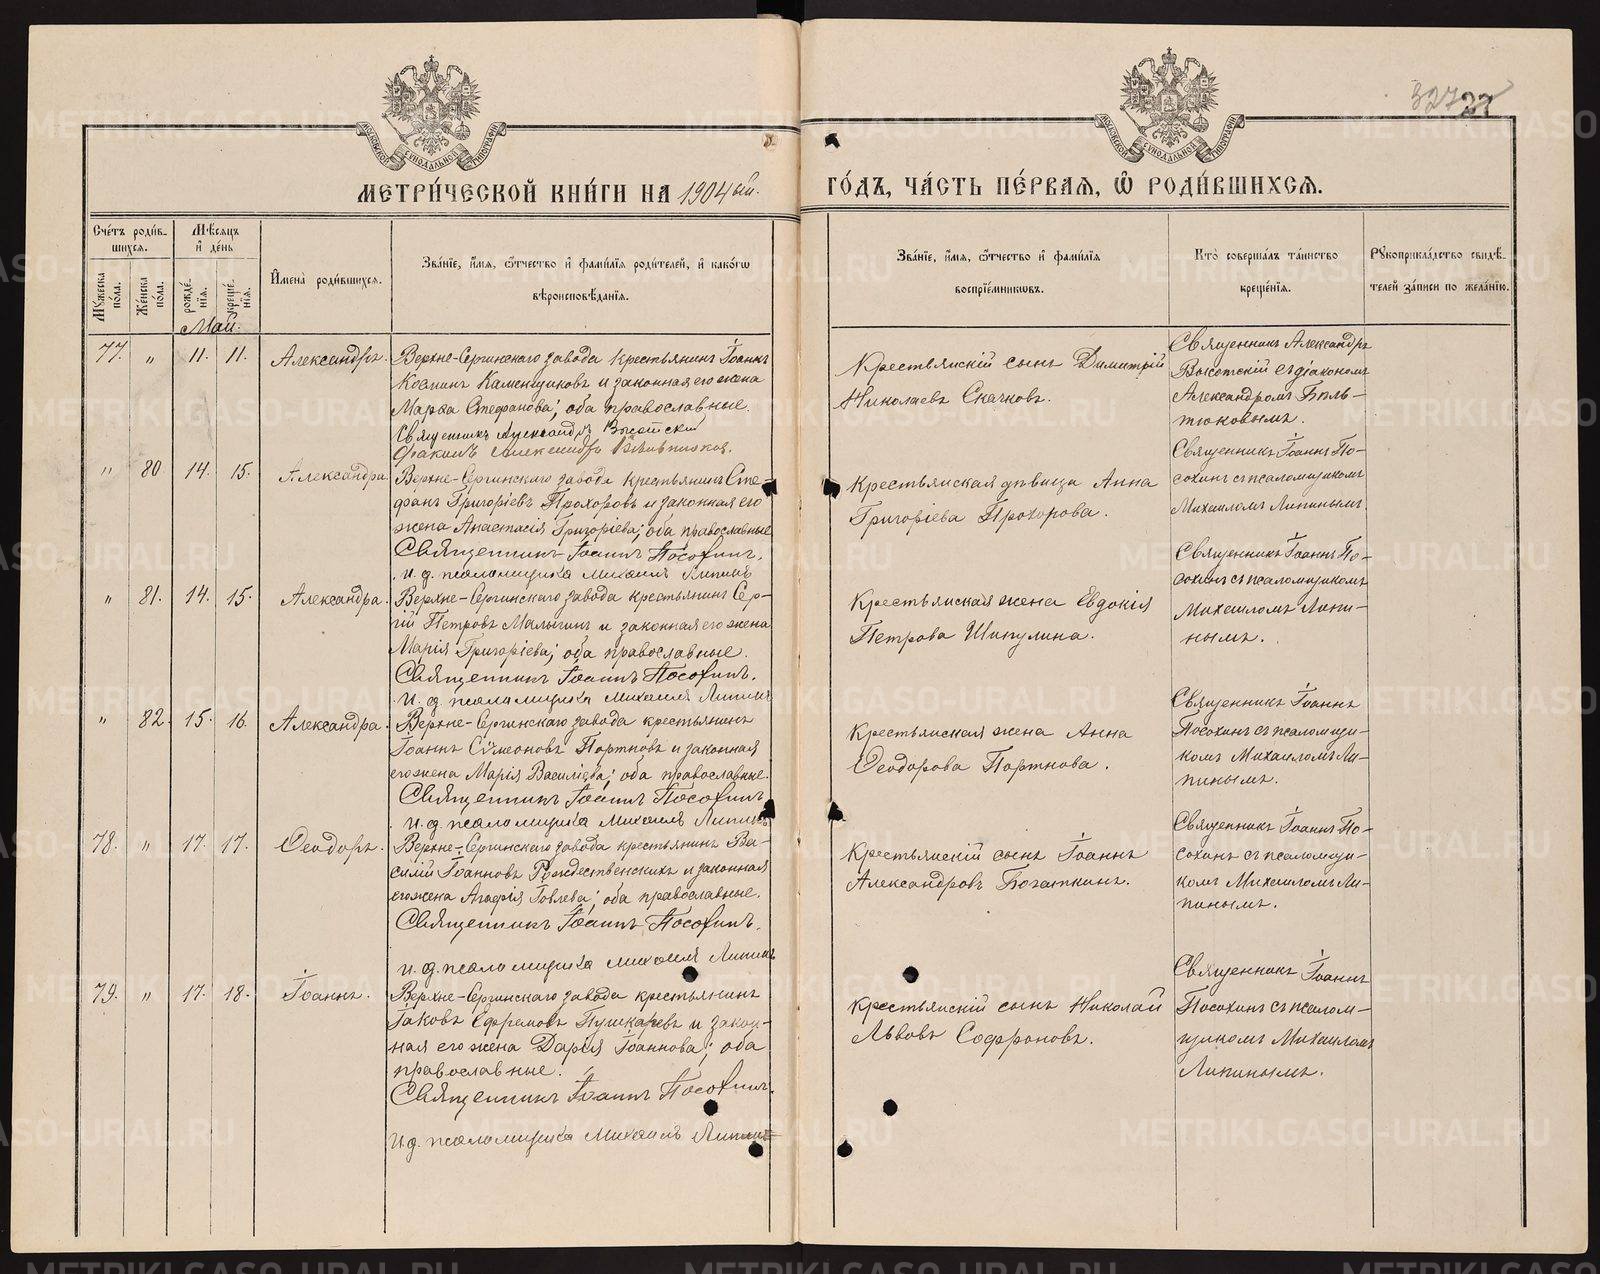 32727
МОСКОВСКОЙ СѴНОДАЛЬНОЙ ТИПОГРАФІИ
МОСКОВСКОЙ СѴНОДАЛЬНОЙ ТИПОГРАФІИ
МЕТРИ́ЧЕСКОЙ КНИ́ГИ НА 1904 ый.
ГО́ДЪ, ЧА́СТЬ ПЕ́РВАѦ, Ѡ҆ РОДИ́ВШИХСѦ.
Сче́тъ роди́в-
шихсѧ.
Мꙋжеска по́ла.
Же́нска по́ла.
Мѣ́сѧцъ
и҆ де́нь
рожде́-
нїѧ.
креще́-
нїѧ.
И҆мена̀ роди́вшихсѧ.
Зва́нїе, и҆́мѧ, ѻ҆́тчество и҆ фами́лїѧ роди́телей, и҆ како́гѡ
вѣроисповѣ́данїѧ.
Зва́нїе, и҆́мѧ, ѻ҆́тчество и҆ фами́лїѧ
воспрїе́мникѡвъ.
Кто̀ соверша́лъ та́инство
креще́нїѧ.
Рꙋкоприкла́дство свидѣ́-
телей за́писи по жела́нїю.
Май.
77. „ 11. 11. Александръ.
Верхне-Сергинскаго завода крестьянинъ Іоаннъ
Косминъ Каменщиковъ и законная его жена
Марѳа Стефанова; оба православные.
Священникъ Александръ Высотскій
Діаконъ Александръ
Крестьянскій сынъ Димитрій
Николаевъ Скачковъ.
Священникъ Александръ
Высотскій съ діакономъ
Александромъ Біль-
тюковымъ.
„ 80 14. 15. Александра
Верхне-Сергинскаго завода крестьянинъ Сте-
фанъ Григоріевъ Прохоровъ и законная его
жена Анастасія Григоріева; оба православные
Священникъ Іоаннъ Посохинъ.
и. д. псаломщика Михаилъ Липинъ
Крестьянская дѣвица Анна
Григоріева Прохорова.
Священникъ Іоаннъ По-
сохинъ съ псаломщикомъ
Михаиломъ Липинымъ.
„ 81. 14. 15. Александра.
Верхне-Сергинскаго завода крестьянинъ Сер-
гій Петровъ Малыгинъ и законная его жена
Марія Григоріева; оба православные.
Священникъ Іоаннъ Посохинъ.
и. д. псаломщика Михаилъ Липинъ
Крестьянская жена Евдокія
Петрова Шипулина.
Священникъ Іоаннъ По-
сохинъ съ псаломщикомъ
Михаиломъ Липи-
нымъ.
„ 82. 15. 16. Александра.
Верхне-Сергинскаго завода крестьянинъ
Іоаннъ Сѵмеоновъ Портновъ и законная
его жена Марія Василіева; оба православные.
Священникъ Іоаннъ Посохинъ
и. д. псаломщика Михаилъ Липинъ
Крестьянская жена Анна
Ѳеодорова Портнова.
Священникъ Іоаннъ
Посохинъ съ псаломщи-
комъ Михаиломъ Ли-
пинымъ.
78. „ 17. 17. Ѳеодоръ.
Верхне-Сергинскаго завода крестьянинъ Ва-
силій Іоанновъ Рождественскихъ и законная
его жена Агафія Іовлева; оба православные.
Священникъ Іоаннъ Посохинъ.
и. д. псаломщика Михаилъ Липинъ
Крестьянскій сынъ Іоаннъ
Александровъ Богаткинъ.
Священникъ Іоаннъ По-
сохинъ съ псаломщи-
комъ Михаиломъ Ли-
пинымъ.
79. „ 17. 18. Іоаннъ.
Верхне-Сергинскаго завода крестьянинъ
Іаковъ Ефремовъ Пушкаревъ и закон-
ная его жена Дарія Іоаннова; оба
православные.
Священникъ Іоаннъ Посохинъ.
и. д. псаломщика Михаилъ Липинъ
Крестьянскій сынъ Николай
Львовъ Софроновъ.
Священникъ Іоаннъ
Посохинъ съ псалом-
щикомъ Михаиломъ
Липинымъ.
METRIKI.GASO-URAL.RU